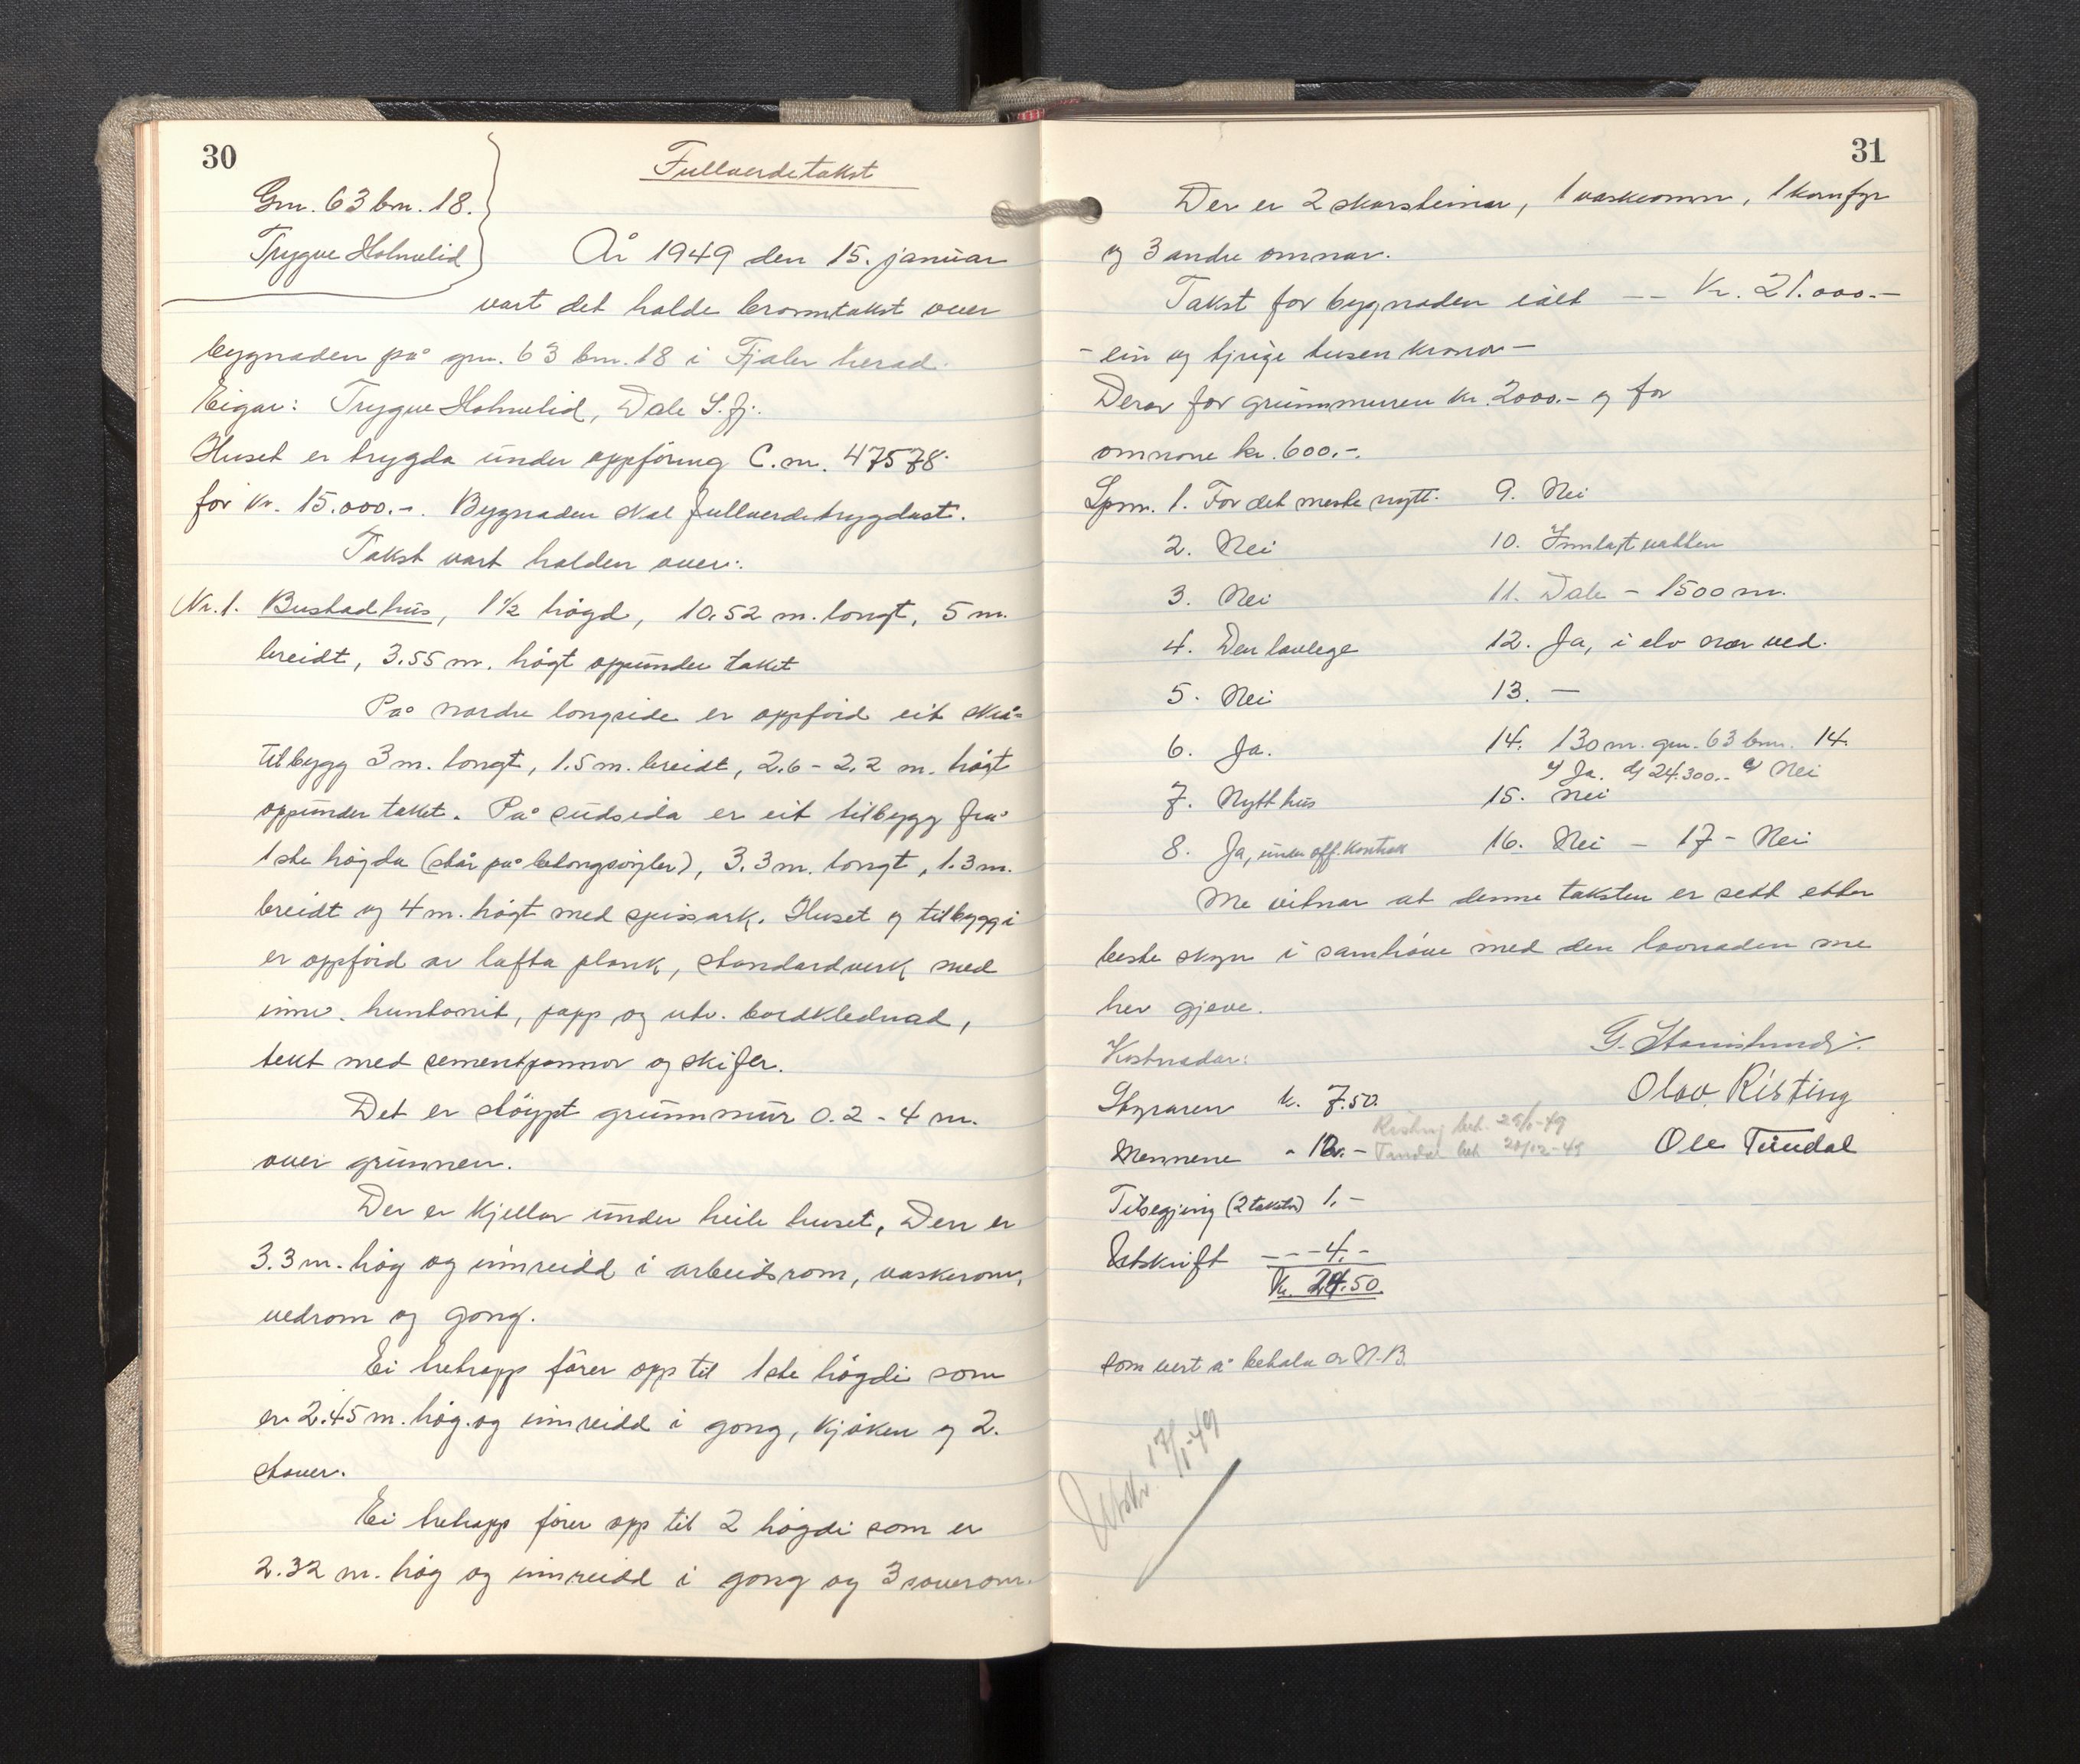 30
Fullverdetakst
Gnr. 63 bnr. 18.
Trygve Holmelid
År 1949 den 15. januar
vart det halde branntakst over
bygnaden på gnr. 63 bnr. 18 i Fjaler herad.
Eigar: Trygve Holmelid, Dale S.fj.
Huset er trygda under oppføring C.nr. 47578
for kr. 15.000.-. Bygnaden skal fullverdetrygdast.
Takst vart halden over:
Nr. 1. Bustadhus, 1 1/2 høgd, 10.52 m. langt, 5 m.
breidt, 3.55 m. høgt oppunder taket
På nordre langside er oppførd eit skå=
tilbygg 3 m. langt, 1.5 m. breidt, 2.6 - 2.2 m. høgt
oppunder taket. På sudsida er eit tilbygg frå
1ste høgda (står på betongsøyler), 3.3 m. langt, 1.3 m.
breidt og 4 m. høgt med spissark. Huset og tilbyggi
er oppførd av lafta plank, standardverk med
innv. huntonit, papp og utv. bordklednad,
tekt med sementpannor og skifer.
Det er støypt grunnmur 0.2 - 4 m.
over grunnen.
Der er kjellar under heile huset, Den er
3.3 m. høg og innreidd i arbeidsrom, vaskerom,
vedrom og gong.
Ei tretrapp fører opp til 1ste høgdi som
er 2.45 m. høg og innreidd i gong, kjøken og 2.
stover.
Ei tretrapp fører opp til 2 høgdi som er
2.32 m. høg og innreidd i gong og 3 soverom.
31
Der er 2 skorsteinar, 1 vaskeomn, 1 komfyr
og 3 andre omnar.
Takst for bygnaden ialt -- Kr. 21.000.-
- ein og tjuge tusen kronor -
Derav for grunnmuren kr. 2000.- og for
omnane kr. 600.-.
Spm. 1. For det meste nytt. 9. Nei
2. Nei 10. Innlagt vatten
3. Nei 11. Dale - 1500 m.
4. Den lovlege 12. Ja, i elv nær ved.
5. Nei 13. -
6. Ja. 14. 130 m. gnr. 63 bnr. 14.
Ja. 24.300.- Nei
7. Nytt hus 15. Nei
8. Ja, under off. kontroll 16. Nei - 17 - Nei
Me vitnar at denne taksten er sett etter
beste skyn i samhøve med den lovnaden me
her gjeve.
Kostnadar:
Styraren kr. 7.50.
Mennene - 12.- Risting bet. 29/1-49
Tundal bet 20/12-49
Tilsegjing (2 takstr) 1.-
Utskrift ---4.-
Kr. 24.50.
Olav Risting
Ole Tundal
som vert å betala av N.B.
Utskr. 17/1-49